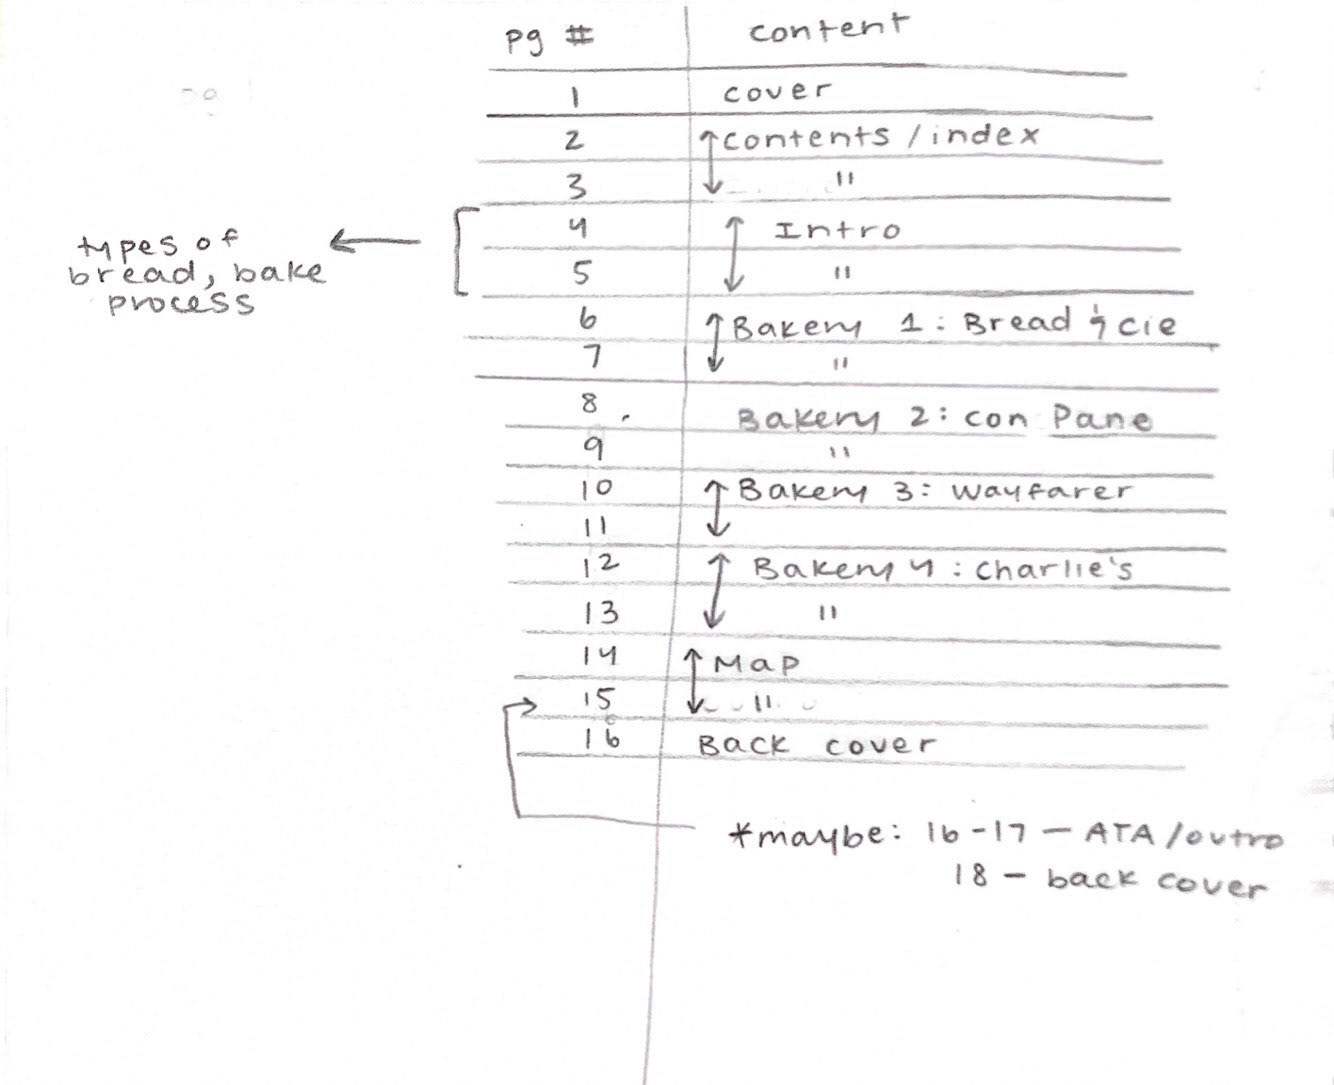 pg # content
1 cover
2 contents / index
3 "
4 Intro
5 "
types of
bread, bake
process
6 Bakery 1: Bread & cie
7 "
8 Bakery 2: con Pane
9 "
10 Bakery 3: wayfarer
11
12 Bakery 4: charlie's
13 "
14 Map
15 "
16 Back cover
*maybe: 16-17 — ATA/outro
18 — back cover